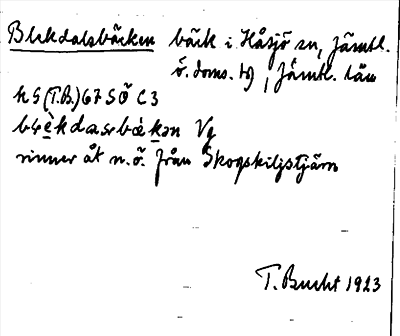 Blekdalsbäcken bäck i Håsjö sn, Jämtl.
ö. doms. tg, Jämtl. län
KS (T.B.) 67 SÖ C3
rinner åt n.ö. från Skogskilstjärn
T. Bucht 1923